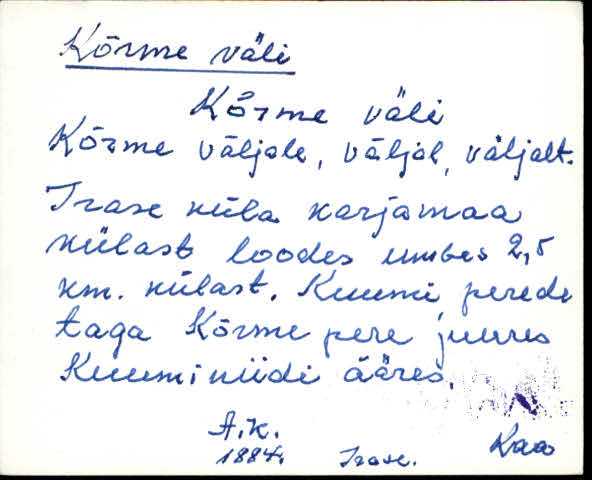 Kõrme väli
Kõrme väli
Kõrme väljale, väljal, väljalt.
Irase küla karjamaa
külast loodes umbes 2,5
km. külast. Kuumi perede
taga Kõrme pere juures
Kuumi niidi ääres.
A.K.
1884. Irase. Kaa